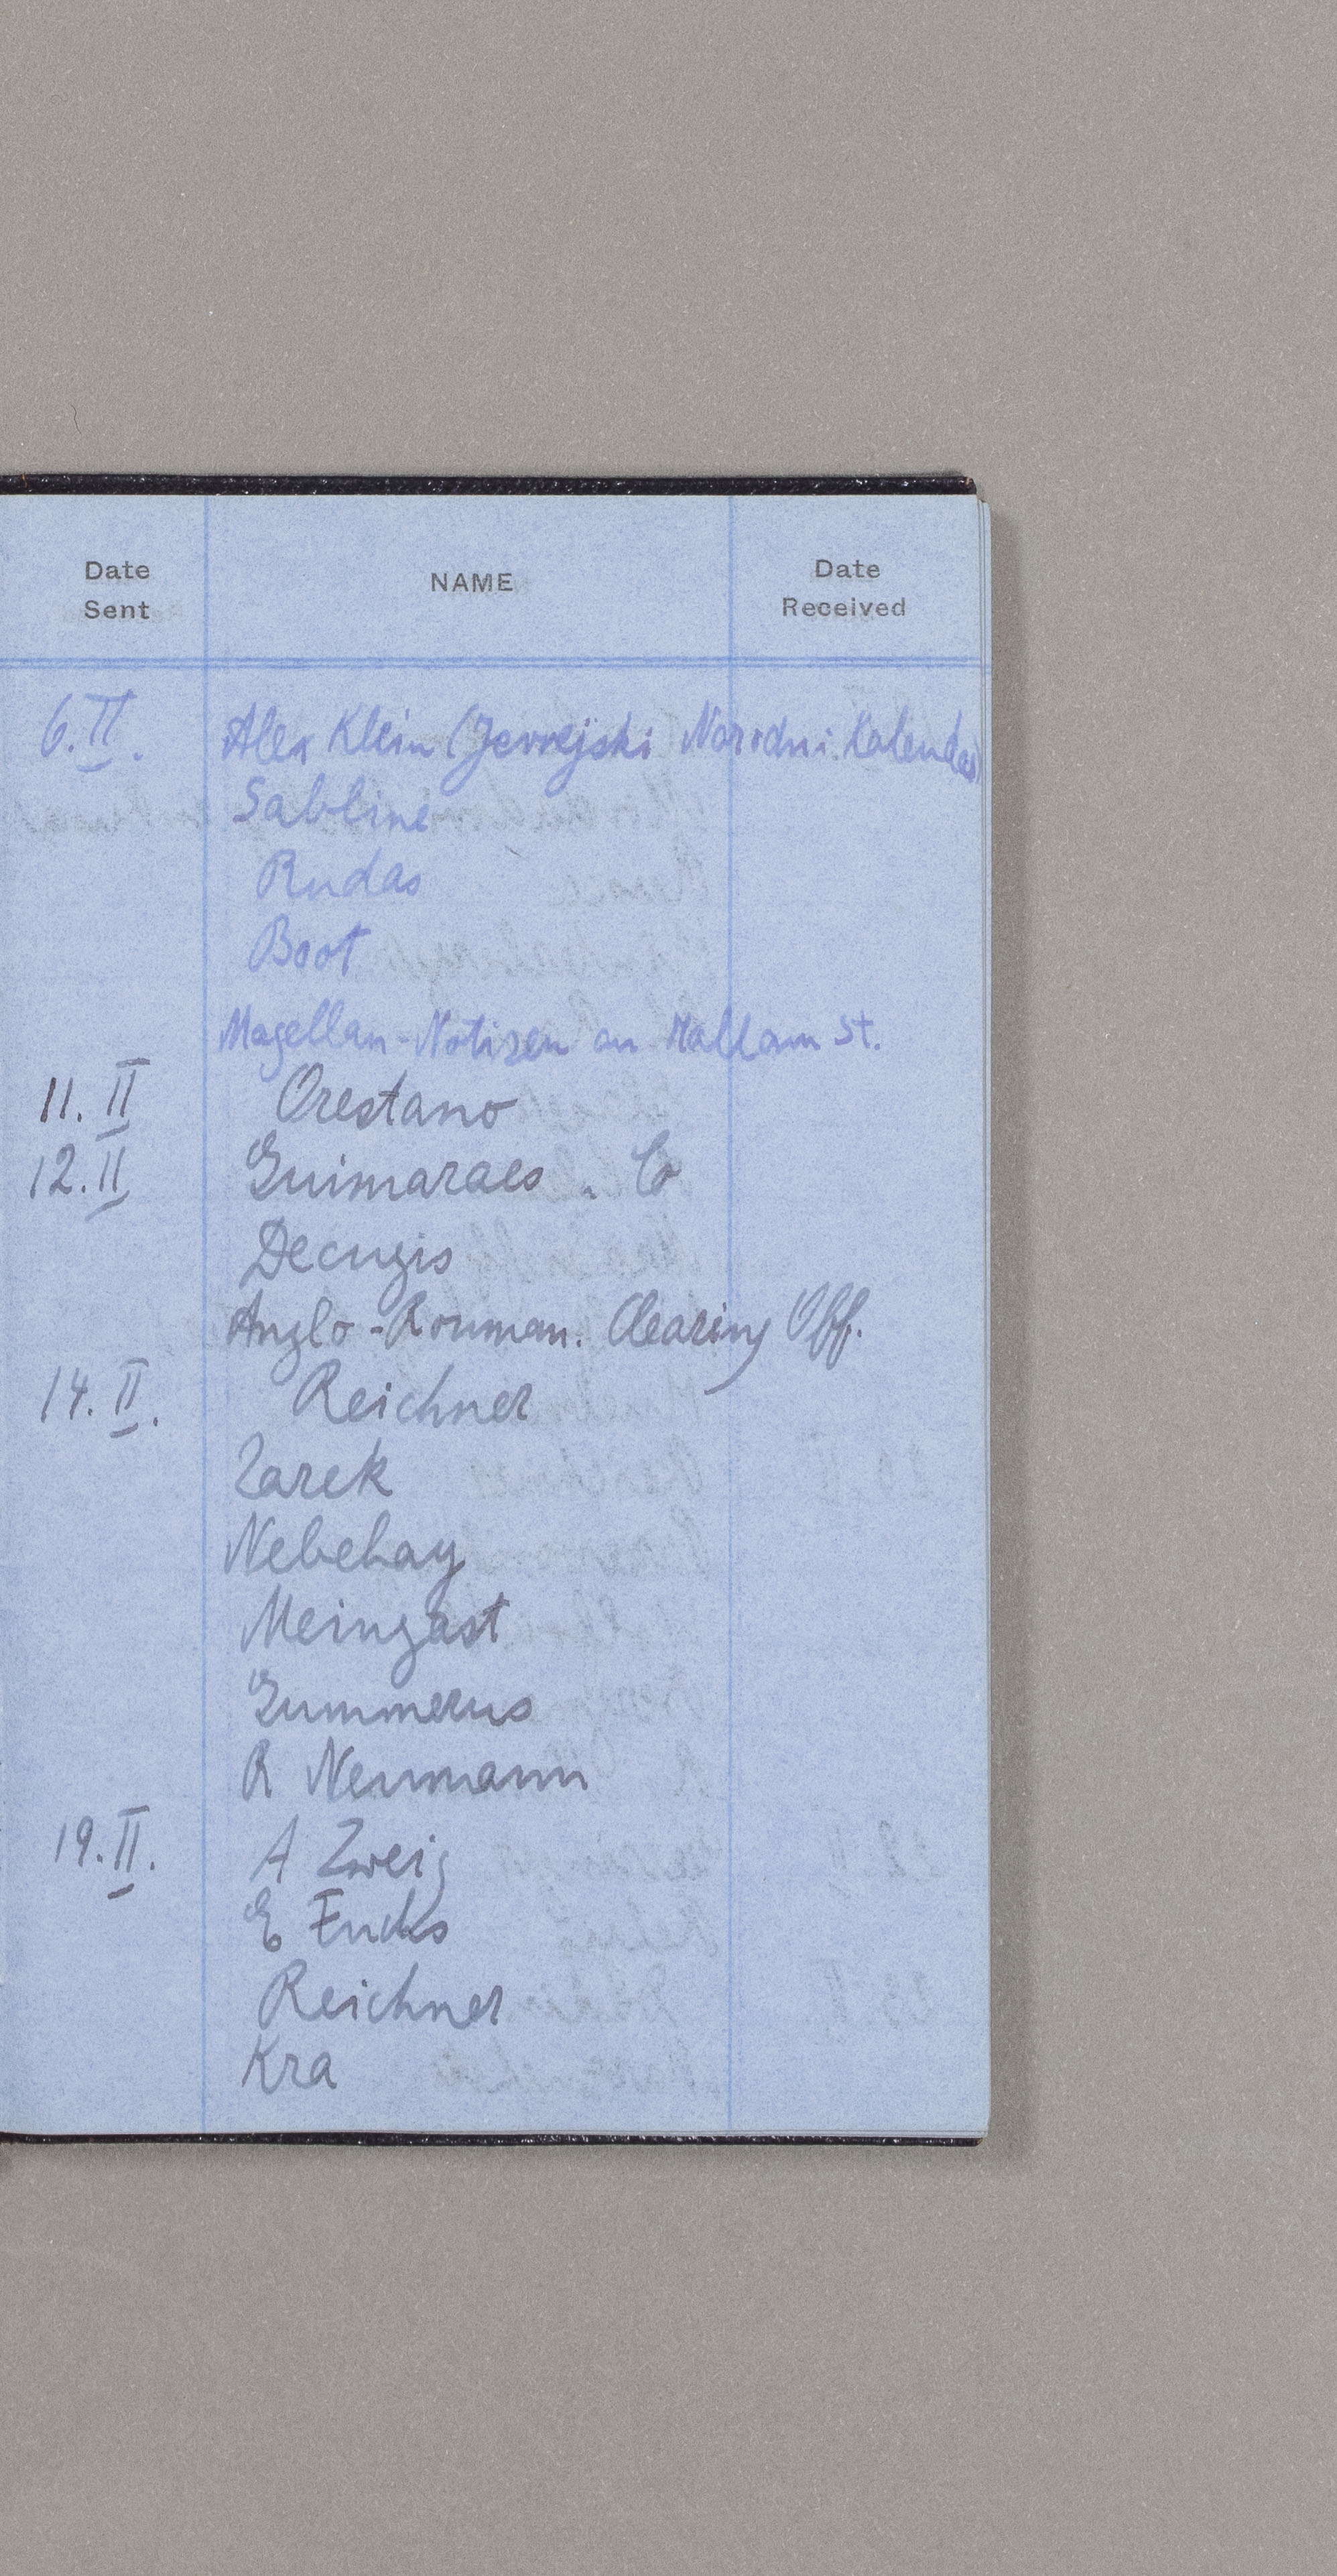 Date Sent NAME Date Received
6.II. Alex Klein (Jevrejski Narodni Kalendar)
Sabline
Rudas
Boot
Magellan-Notizen an Hallam St.
11. II Orestano
12. II Guimaraes . Co
Decugis
Anglo-Rouman. Clearing Off.
14. II. Reichner
Zarek
Nebehay
Meingast
Gummerus
R Neumann
19. II. A Zweig
E Fuchs
Reichner
Kra